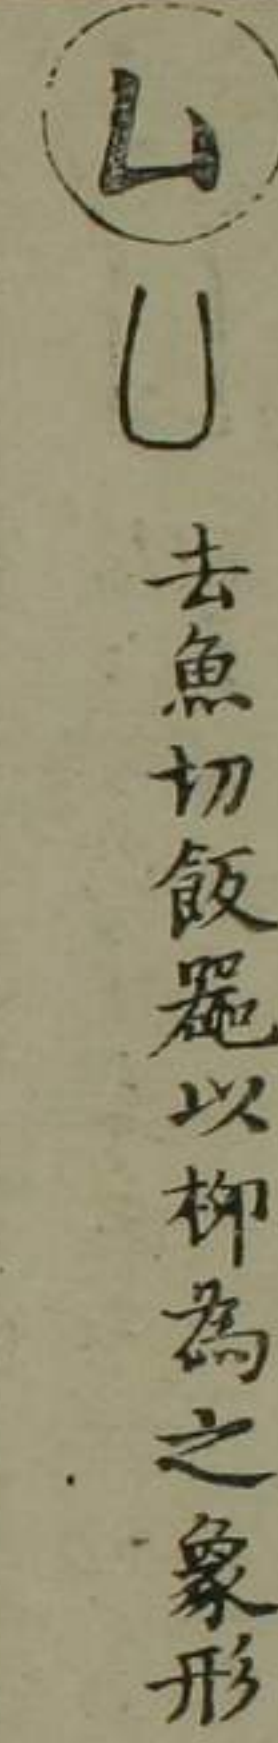 凵
凵
去魚切飯器以柳為之象形